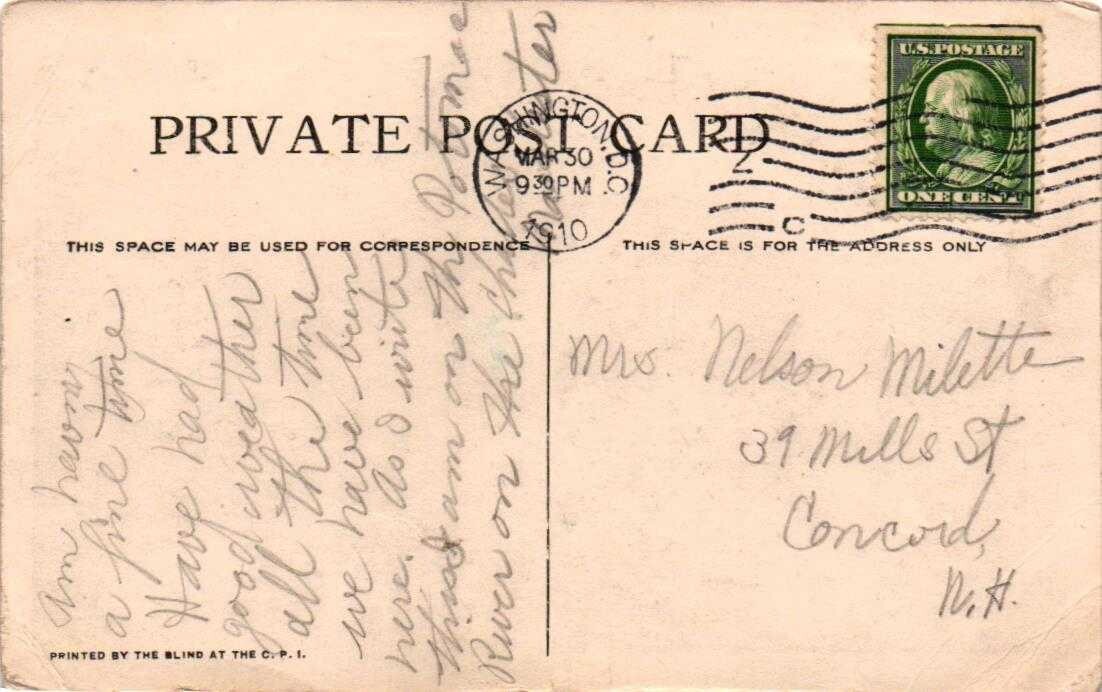 PRIVATE POST CARD
U.S. POSTAGE
ONE CENT
WASHINGTON, D.C.
MAR 30
9 30 PM
1910
2
C
THIS SPACE MAY BE USED FOR CORRESPONDENCE
THIS SPACE IS FOR THE ADDRESS ONLY
Am having
a fine time
Have had
good weather
all the time
we have been
here. As I write
this I am on the Potomac
River on the
Mrs. Nelson Milette
39 Mills St
Concord,
N.H.
PRINTED BY THE BLIND AT THE C. P. I.